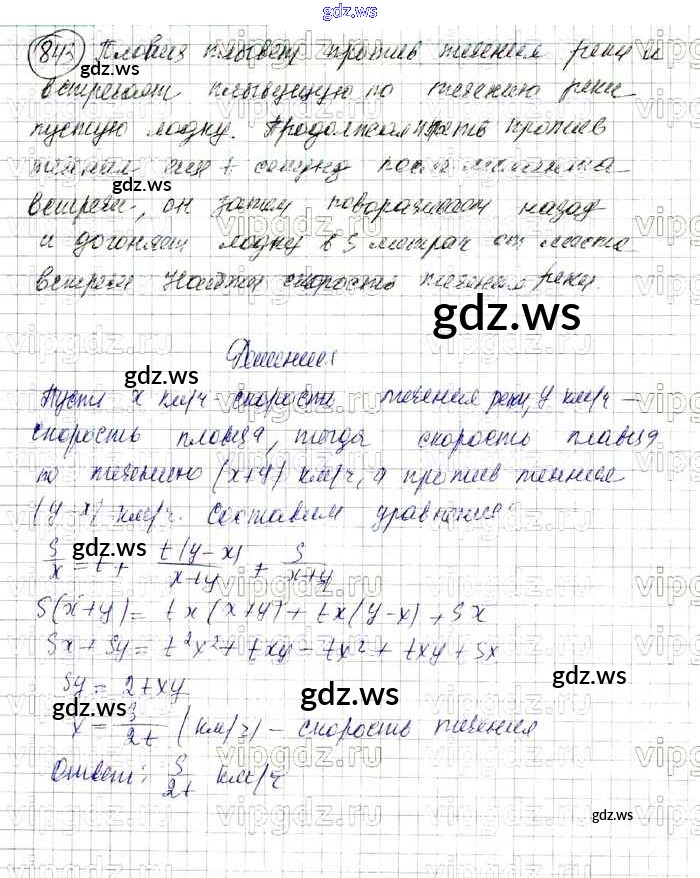 gdz.ws
843 Пловец плывет против течения реки и
встречает плывущую по течению реки
пустую лодку. Продолжая плыть против
течения еще t секунд после момента
gdz.ws
встречи, он затем поворачивает назад
и догоняет лодку в S метрах от места
встречи. Найти скорость течения реки.
gdz.ws
Решение
gdz.ws
Пусть x км/ч скорость течения реки, y км/ч –
скорость пловца, тогда скорость пловца
по течению (x+y) км/ч, а против течения
(y-x) км/ч. Составим уравнение:
gdz.ws
S/x = t + t(y-x)/(x+y) + S/(x+y)
S(x+y) = tx(x+y) + tx(y-x) + Sx
Sx + Sy = tx² + txy - tx² + txy + Sx
Sy = 2txy
gdz.ws gdz.ws
x = S/2t (км/ч) – скорость течения
Ответ: S/2t км/ч
gdz.ws
gdz.ws